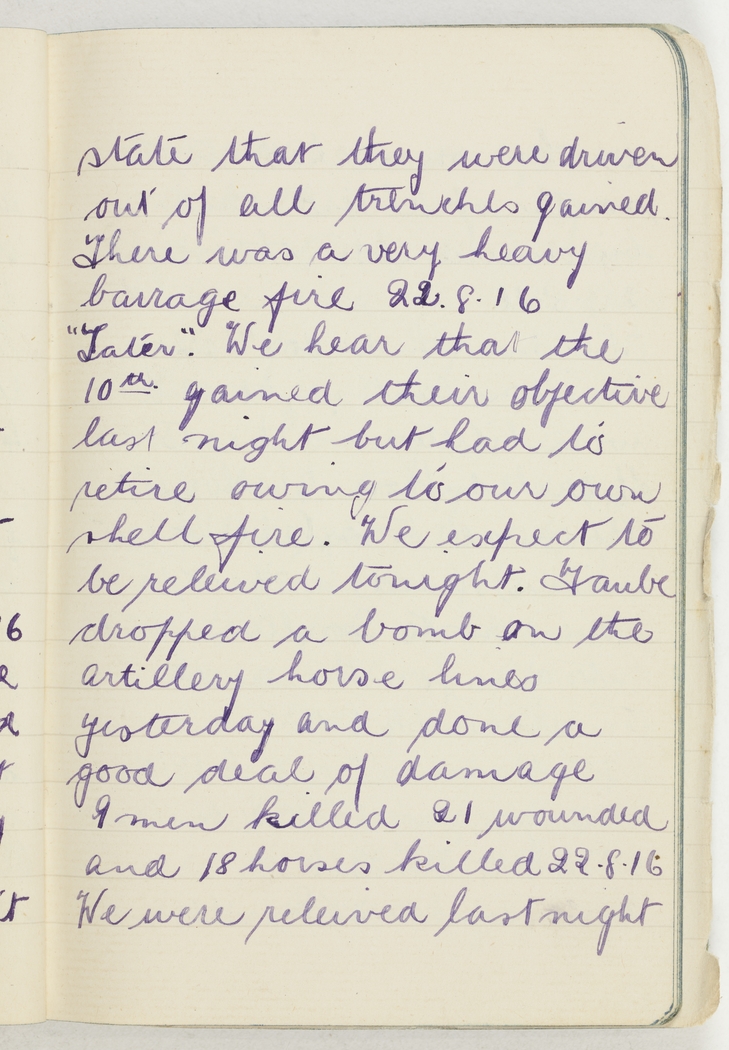 state that they were driven
out of all trenches gained.
There was a very heavy
barrage fire 22.8.16
"Later". We hear that the
10th. gained their objective
last night but had to
retire owing to our own
shell fire. We expect to
be releived tonight. Taube
dropped a bomb on the
artillery horse lines
yesterday and done a
good deal of damage
9 men killed 21 wounded
and 18 horses killed 22.8.16
We were releived last night